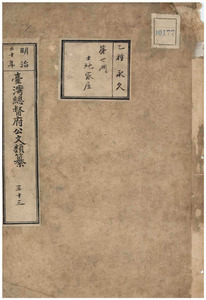 10177
乙種永久
第七門
土地家屋
明治
三十年
臺灣總督府公文類纂
三十三